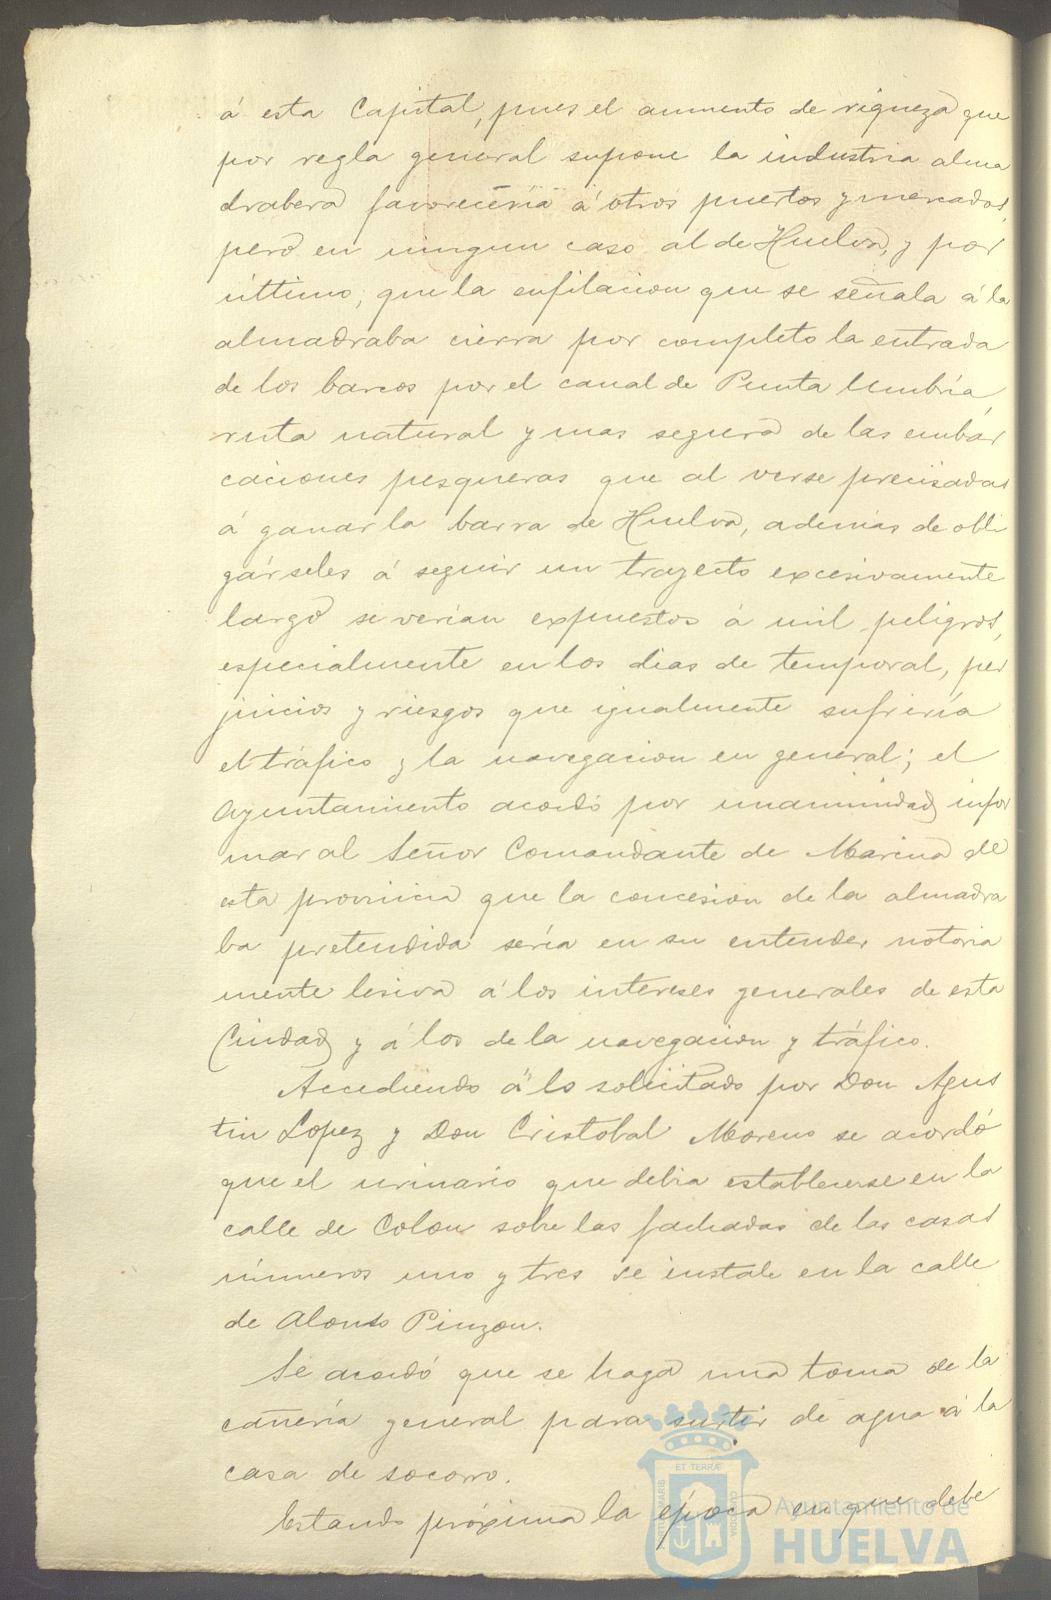 á esta Capital, pues el aumento de riqueza que
por regla general supone la industria alma
drabera favorecería á otros puertos y mercados,
pero en ningun caso al de Huelva, y por
último, que la enfilacion que se señala á la
almadraba cierra por completo la entrada
de los barcos por el canal de Punta Umbría
ruta natural y mas segura de las embar
caciones pesqueras que al verse precisadas
á ganar la barra de Huelva, además de obli
gárseles á seguir un trayecto excesivamente
largo se verían expuestos á mil peligros,
especialmente en los dias de temporal, per
juicios y riesgos que igualmente sufriría
el tráfico y la navegacion en general; el
Ayuntamiento acordó por unanimidad infor
mar al Señor Comandante de Marina de
esta provincia que la concesion de la almadra
ba pretendida sería en su entender notoria
mente lesiva á los intereses generales de esta
Ciudad y á los de la navegacion y tráfico.
Accediendo á lo solicitado por Don Agus
tin Lopez y Don Cristobal Moreno se acordó
que el urinario que debia establecerse en la
calle de Colon sobre las fachadas de las casas
números uno y tres se instale en la calle
de Alonso Pinzon.
Se acordó que se haga una toma de la
cañería general para surtir de agua á la
casa de socorro.
Estando próxima la época en que debe
ET TERRÆ
Ayuntamiento de
HUELVA